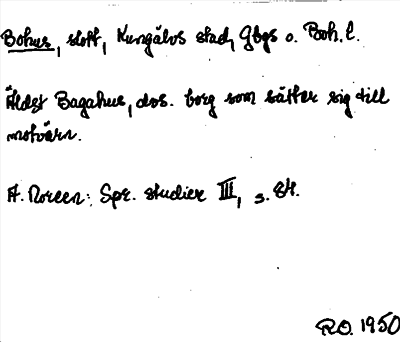 Bohus, slott, Kungälvs stad, Gbgs o. Boh. l.
Äldst Bagahus, dvs. borg som sätter sig till
motvärn.
A. Noreen: Spr. studier III, s. 84.
R.O. 1950